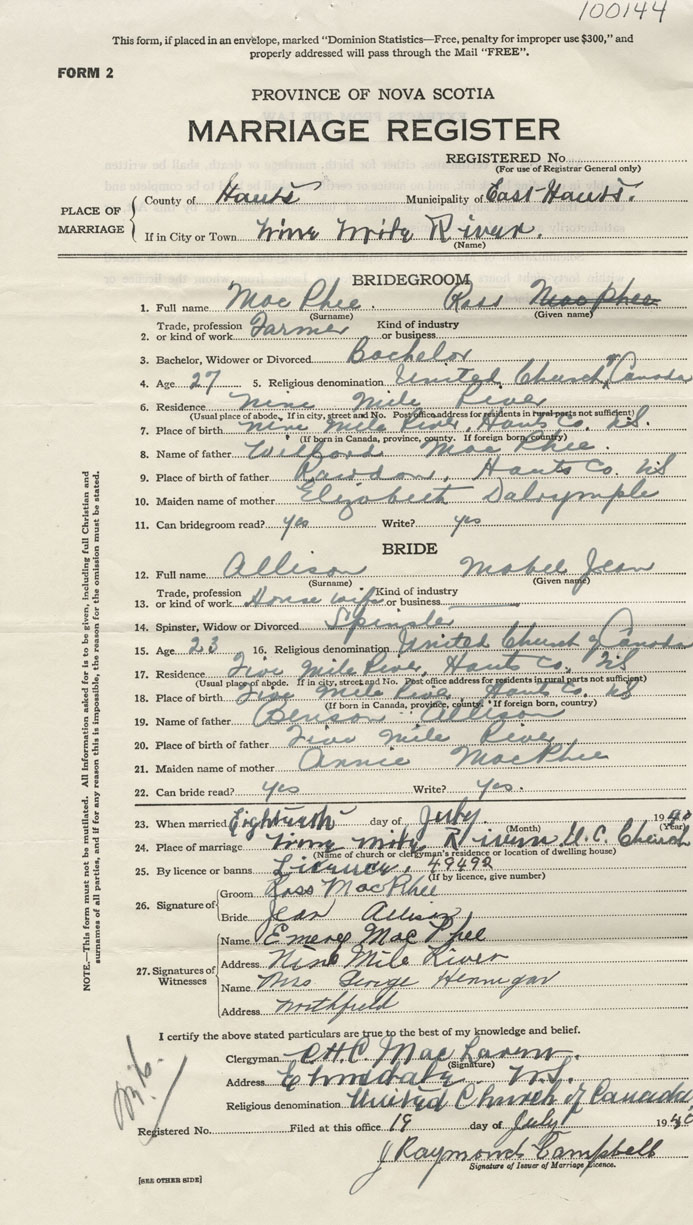 100144
This form, if placed in an envelope, marked "Dominion Statistics—Free, penalty for improper use $300," and
properly addressed will pass through the Mail "FREE".
FORM 2
PROVINCE OF NOVA SCOTIA
MARRIAGE REGISTER
REGISTERED No.
(For use of Registrar General only)
PLACE OF MARRIAGE
County of Hants Municipality of East Hants.
If in City or Town Nine Mile River.
(Name)
BRIDEGROOM
1. Full name MacPhee. Ross MacPhee
(Surname) (Given name)
2. Trade, profession or kind of work Farmer Kind of industry or business
3. Bachelor, Widower or Divorced Bachelor
4. Age 27 5. Religious denomination United Church of Canada
6. Residence Nine Mile River
(Usual place of abode. If in city, street and No. Post office address for residents in rural parts not sufficient)
7. Place of birth Nine Mile River, Hants Co. N.S.
(If born in Canada, province, county. If foreign born, country)
8. Name of father Wilford MacPhee.
9. Place of birth of father Rawdon, Hants Co. NS
10. Maiden name of mother Elizabeth Dalrymple
11. Can bridegroom read? yes Write? yes
BRIDE
12. Full name Allison Mabel Jean
(Surname) (Given name)
13. Trade, profession or kind of work House wife Kind of industry or business
14. Spinster, Widow or Divorced Spinster
15. Age 23 16. Religious denomination United Church of Canada
17. Residence Five Mile River, Hants Co., NS
(Usual place of abode. If in city, street and No. Post office address for residents in rural parts not sufficient)
18. Place of birth Five Mile River, Hants Co. NS
(If born in Canada, province, county. If foreign born, country)
19. Name of father Benson Allison
20. Place of birth of father Five Mile River
21. Maiden name of mother Annie MacPhee
22. Can bride read? yes Write? yes.
23. When married Eighteenth day of July. 1940
(Month) (Year)
24. Place of marriage Nine Mile River U.C. Church
(Name of church or clergyman's residence or location of dwelling house)
25. By licence or banns Licence, 49492
(If by licence, give number)
26. Signature of
Groom Ross MacPhee
Bride Jean Allison
27. Signatures of Witnesses
Name Emery MacPhee
Address Nine Mile River
Name Mrs George Hennigar
Address Northfield
I certify the above stated particulars are true to the best of my knowledge and belief.
Clergyman C.H.C. MacLaren.
(Signature)
Address Elmsdale N.S.
Religious denomination United Church of Canada
Registered No. Filed at this office 19 day of July 1940
J Raymond Campbell
Signature of Issuer of Marriage Licence.
[SEE OTHER SIDE]
NOTE.—This form must not be mutilated. All information asked for is to be given, including full Christian and
surnames of all parties, and if for any reason this is impossible, the reason for the omission must be stated.